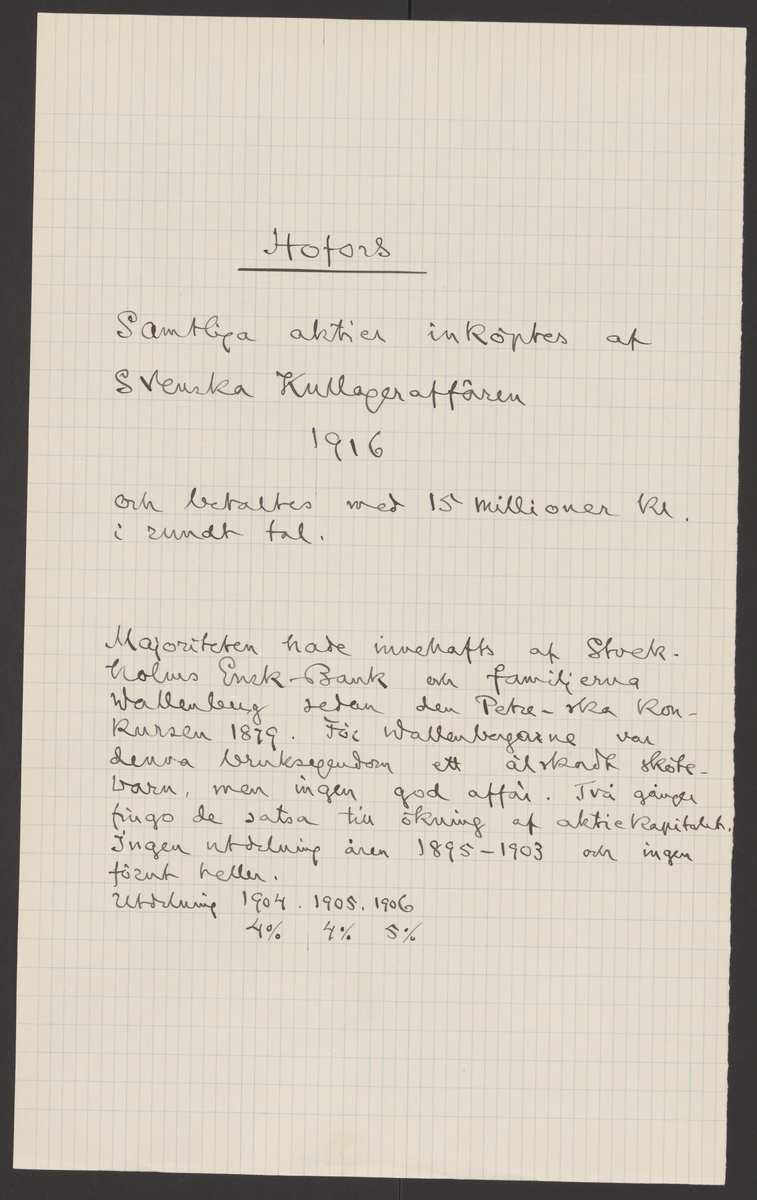 Hofors
Samtliga aktier inköptes af
Svenska Kullageraffären
1916
och betaltes med 15 millioner kr.
i rundt tal.
Majoriteten hade innehafts af Stock-
holms Ensk-Bank och familjerna
Wallenberg sedan den Petre-ska kon-
kursen 1879. För Wallenbergarne var
denna bruksegendom ett älskadt sköte-
barn, men ingen god affär. Två gånger
fingo de satsa till ökning af aktiekapitalet.
Ingen utdelning åren 1895-1903 och ingen
förut heller.
Utdelning 1904. 1905. 1906
4% 4% 5%